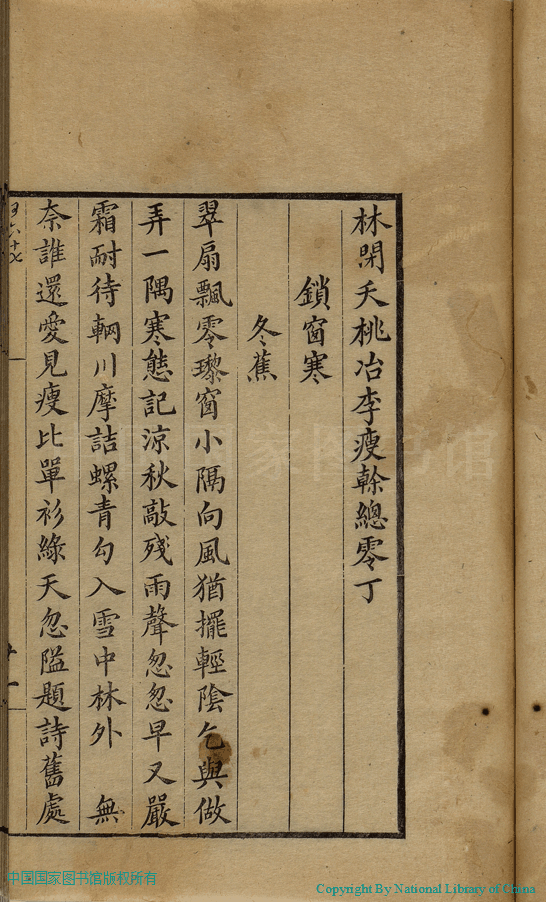 林閑夭桃冶李瘦榦總零丁
鎖窗寒
冬蕉
翠扇飄零瓈窗小隔向風猶擺輕陰乞與做
弄一隅寒態記涼秋敲殘雨聲忽忽早又嚴
霜耐待輞川摩詰螺青勾入雪中林外　無
奈誰還愛見瘦比單衫綠天忽隘題詩舊處
十一
中国国家图书馆
中国国家图书馆版权所有
Copyright By National Library of China